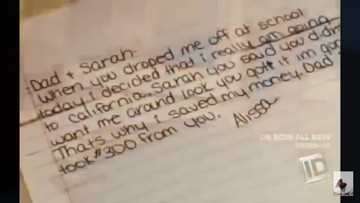 Dad + Sarah-
When you droped me off at school
today i decided that i really am going
to california. Sarah you said you didnt
want me around look you gott it im gon
Thats why i saved my money. Dad i
took $300 from you.
Alissa
ON NOW ALL NEW
ID